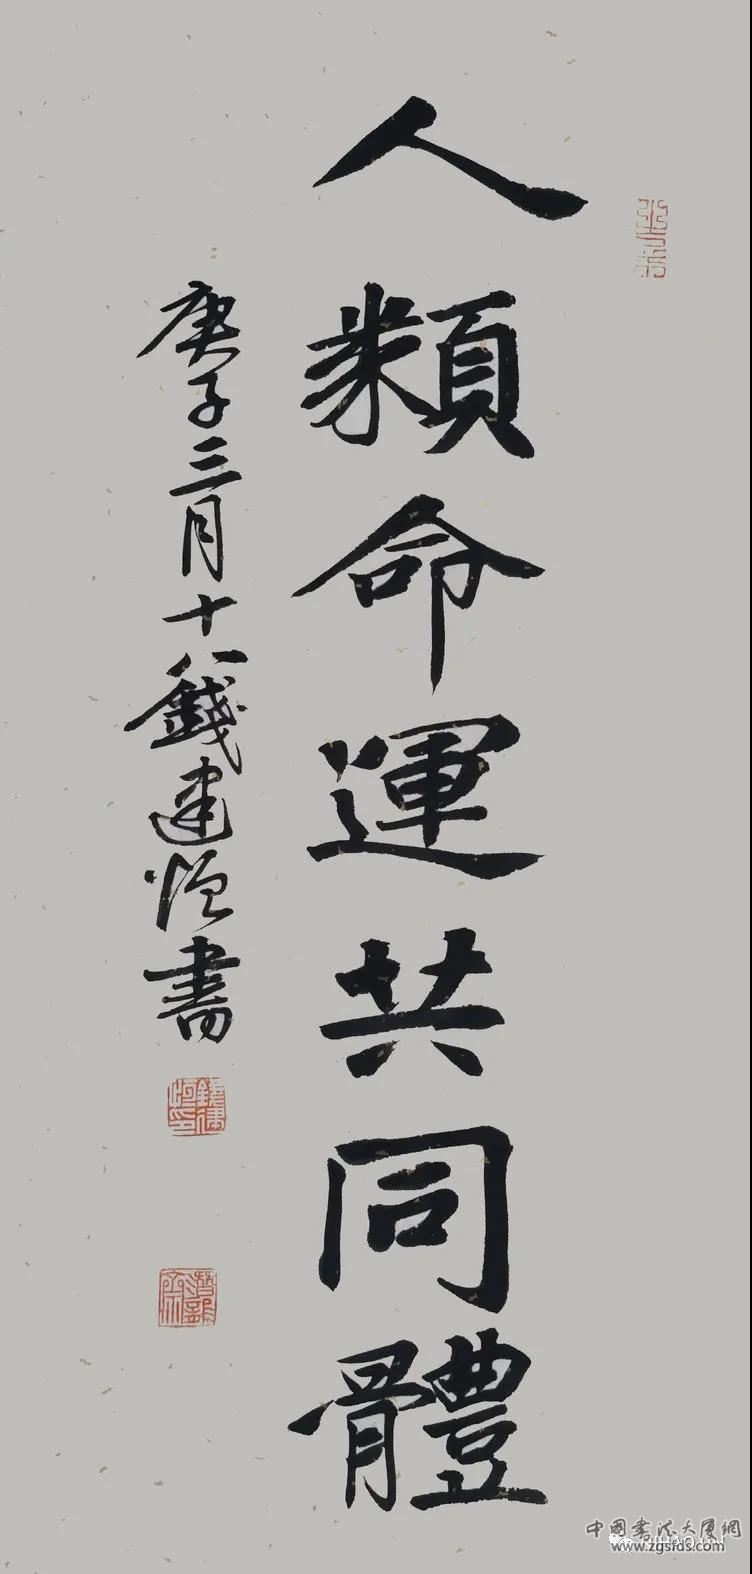 人類命運共同體
庚子三月十八錢建書
中國書法大廈網
www.zgsfds.com